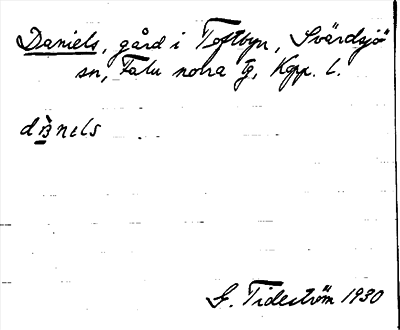 Daniels, gård i Toftbyn, Svärdsjö
sn, Falu norra tg, Kopp. l.
nels
G. Tideström 1930